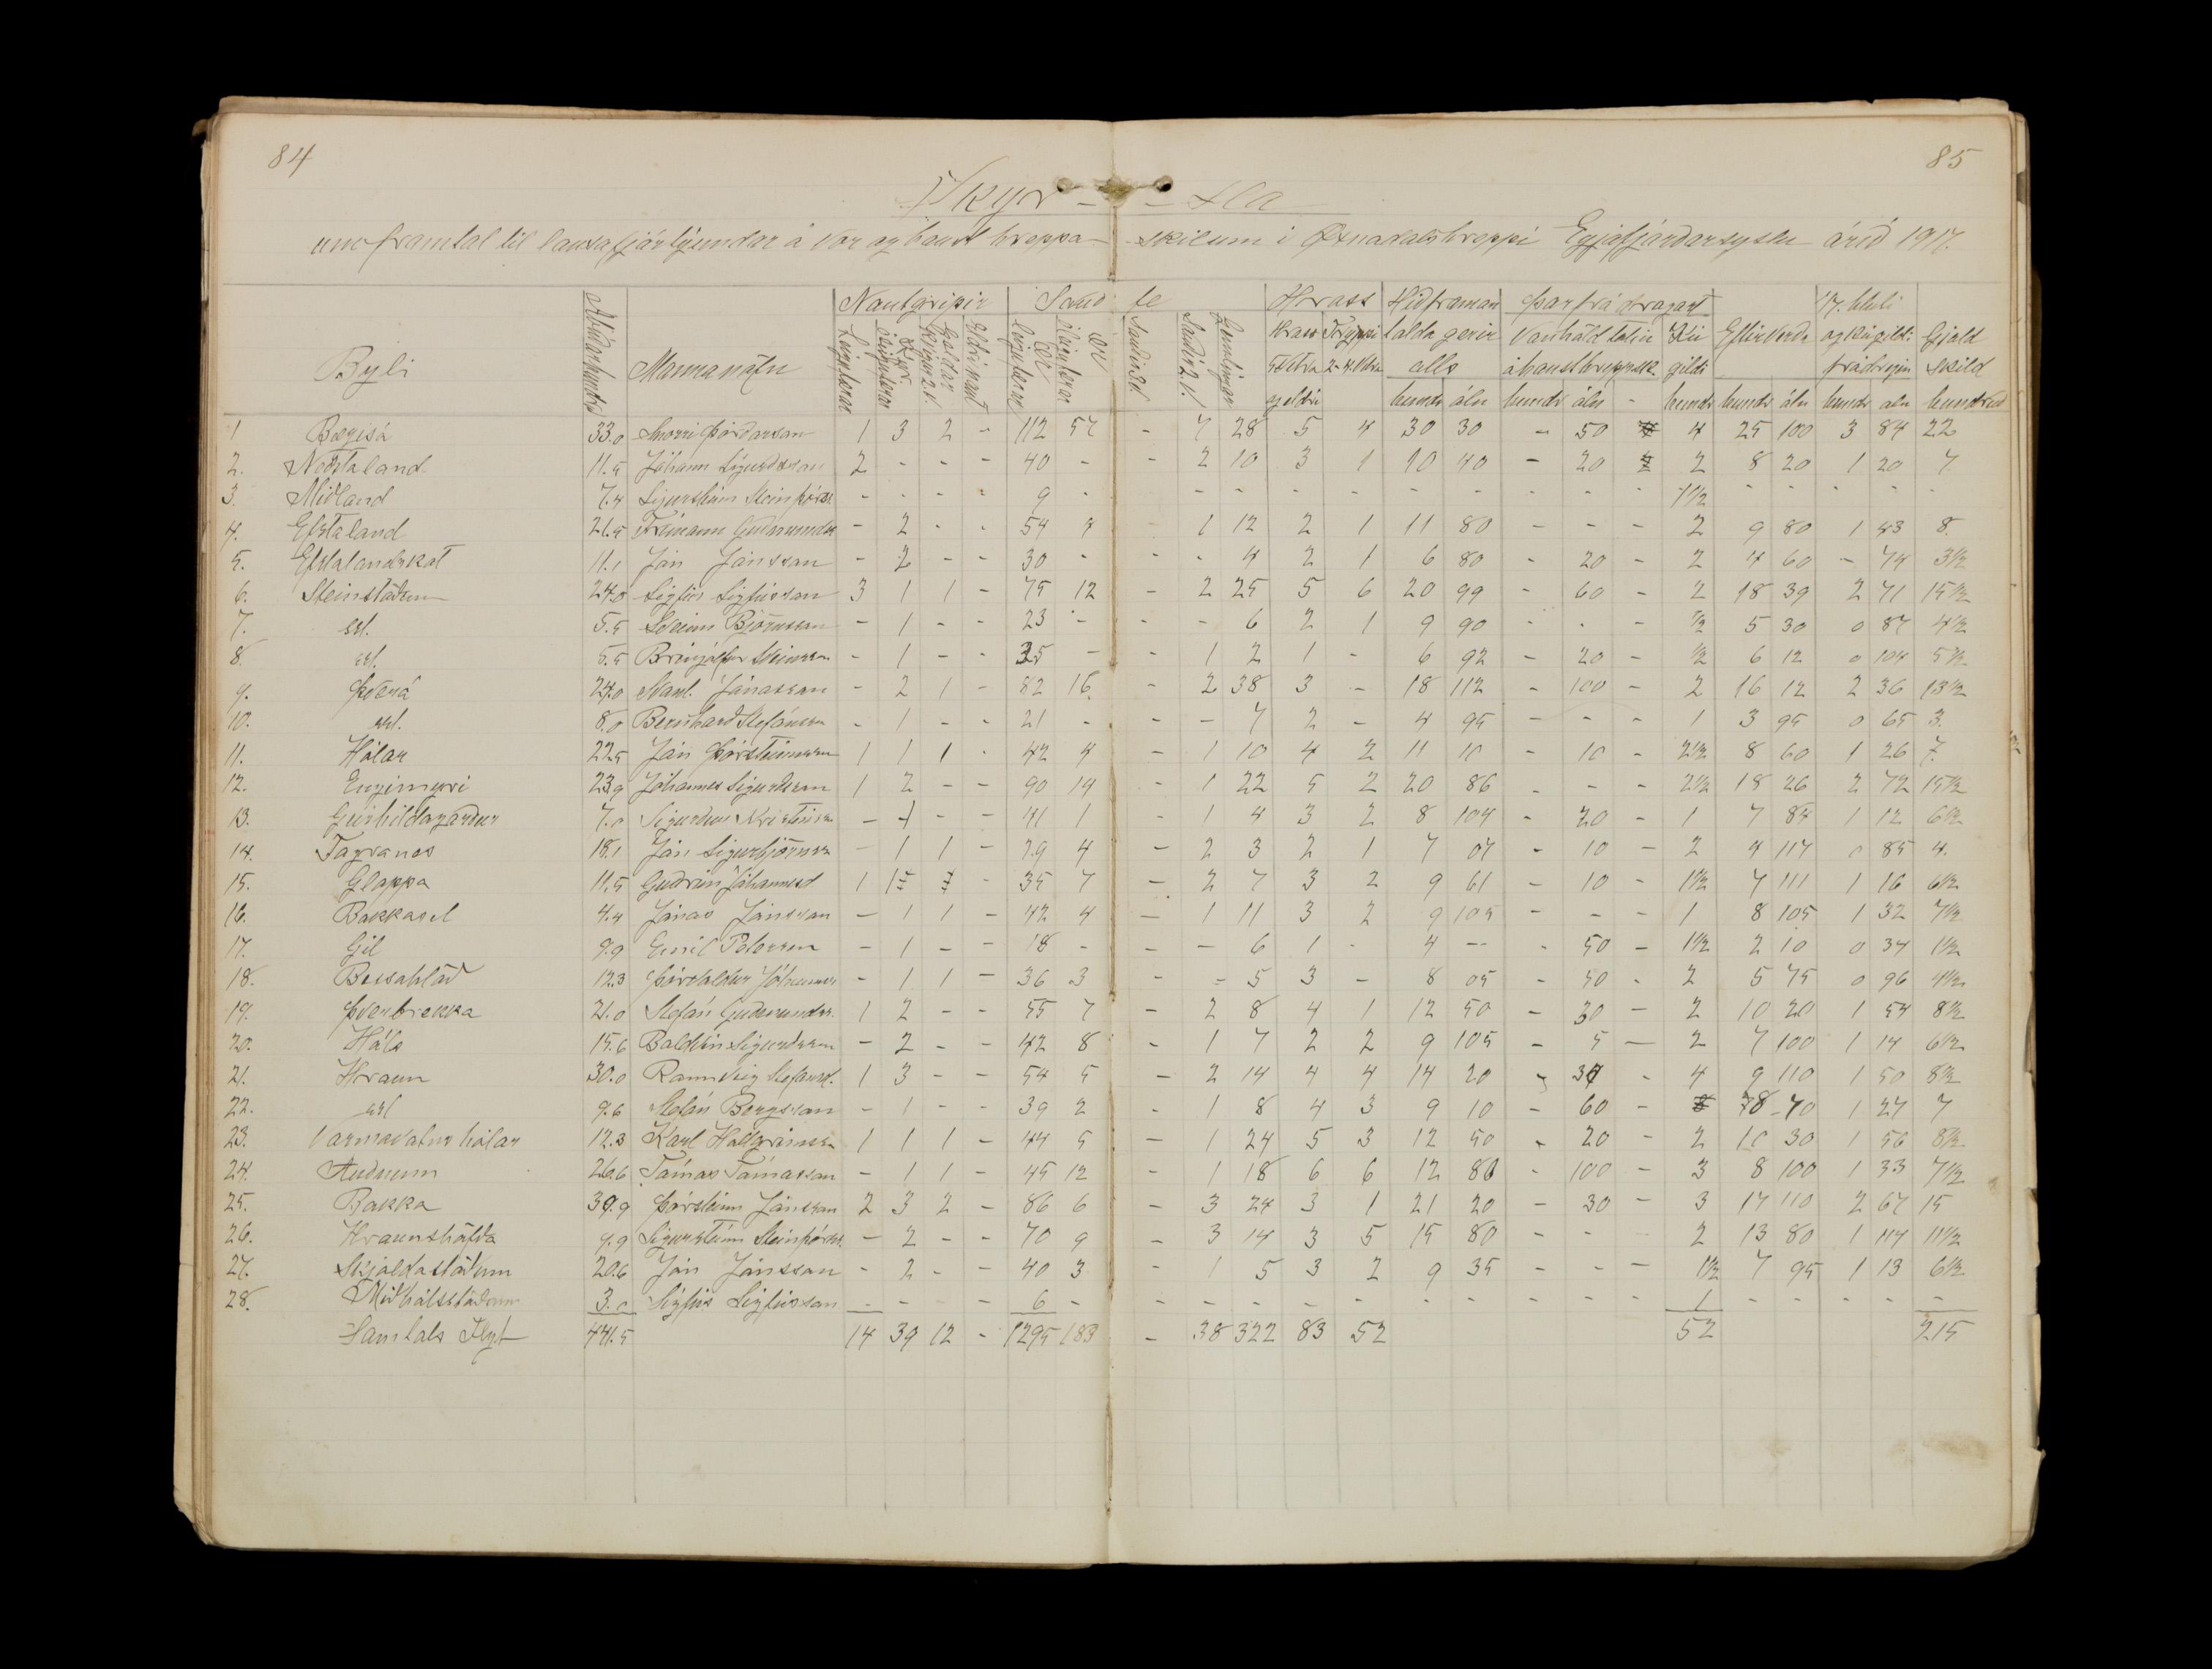 84
85
Skyr - - sla
um framtal til lausafjártíundar á vor og haust hreppa - skilum i Öxnadalshreppi Eyjafjarðarsyslu árið 1917.
Býli Ábúðarhundr. Mannanöfn Nautgripir Sauð fé Hross Hið framan talda gerir alls Þar frá dragast Eftir verða 1/7. hluti og kúgildi frádregin Gjald skild
Kýr Geldar Eldri naut Ær Sauðir 2 v. Gemlingar Hross 5 vetra Tryppi 2-4 vetra Vanhöld talin á hausthreppsk. Kú gildi
hundr áln hundr áln - hundr hundr áln hundr aln hundruð
1 Bægisá 33.0 Snorri Þórðarson 1 3 2 - 112 57 - 7 28 5 4 30 30 - 50 4 25 100 3 84 22
2. Neðstaland 11.5 Jóhann Sigurðsson 2 - - - 40 - - 2 10 3 1 10 40 - 20 2 8 20 1 20 7
3. Miðland 7.4 Sigursteinn Steinþórss. - - - - 9 - - - - - - - - - - 1 1/2 - - - - -
4. Efstaland 21.5 Frímann Guðmundss - 2 - - 54 4 1 12 2 1 11 80 - - - 2 9 80 1 43 8.
5. Efstalandskot 11.1 Jón Jónsson - 2 - - 30 - - - 4 2 1 6 80 - 20 - 2 4 60 - 74 3 1/2
6. Steinstaðum 24.0 Sigfús Sigfússon 3 1 1 - 75 12 - 2 25 5 6 20 99 - 60 - 2 18 39 2 71 15 1/2
7. stl. 5.5 Sveinn Björnsson - 1 - - 23 - - - 6 2 1 9 90 - - - 1/2 5 30 0 87 4 1/2
8. stl. 5.5 Brinjólfur Sveinsson - 1 - - 35 - - 1 2 1 - 6 92 - 20 - 1/2 6 12 0 104 5 1/2
9. Þverá 24.0 Stanl. Jónasson - 2 1 - 82 16 - 2 38 3 - 18 112 - 100 - 2 16 12 2 36 13 1/2
10. stl. 8.0 Bernharð Stefánsson - 1 - - 21 - - - 7 2 - 4 95 - - - 1 3 95 0 65 3.
11. Hólar 22.5 Ján Þorsteinsson 1 1 1 - 42 4 - 1 10 4 2 11 10 - 10 - 2 1/2 8 60 1 26 7.
12. Engimyri 23.9 Jóhannes Sigurðsson 1 2 - - 90 19 - 1 22 5 2 20 86 - - - 2 1/2 18 26 2 72 15 1/2
13. Geirhildagarður 7.0 Sigurður Kristinss - 1 - - 41 1 - 1 4 3 2 8 104 - 20 - 1 7 84 1 12 6 1/2
14. Fagranes 18.1 Ján Sigurbjörnsson - 1 1 - 29 4 - 2 3 2 1 7 07 - 10 - 2 4 117 0 85 4.
15. Gloppa 11.5 Guðrún Jóhannesd 1 1 - 35 7 - 2 7 3 2 9 61 - 10 - 1 1/2 7 111 1 16 6 1/2
16. Bakkasel 4.4 Jónas Jónsson - 1 1 - 42 4 - 1 11 3 2 9 105 - - - 1 8 105 1 32 7 1/2
17. Gil 9.9 Emil Petersen - 1 - - 18 - - - 6 1 - 4 -- - 50 - 1 1/2 2 10 0 34 1 1/2
18. Bessahlað 12.3 Þórvaldur Jóhannes - 1 1 - 36 3 - - 5 3 - 8 05 - 50 - 2 5 75 0 96 4 1/2
19. Þverbrekka 21.0 Stefán Guðmundss. 1 2 - - 55 7 - 2 8 4 1 12 50 - 30 - 2 10 20 1 54 8 1/2
20. Háls 15.6 Baldvin Sigurðsson - 2 - - 42 8 - 1 7 2 2 9 105 - 5 - 2 7 100 1 14 6 1/2
21. Hraun 30.0 Rannveig Stefansd. 1 3 - - 54 5 - 2 14 4 4 14 20 - - 4 9 110 1 50 8 1/2
22. stl 9.6 Stefán Bergsson - 1 - - 39 2 - 1 8 4 3 9 10 - 60 - 8 70 1 27 7
23. Varmavatnshólar 12.3 Karl Hallgrímsson 1 1 1 - 44 5 - 1 24 5 3 12 50 - 20 - 2 10 30 1 56 8 1/2
24. Auðnum 26.6 Tómas Tómasson - 1 1 - 45 12 - 1 18 6 6 12 80 - 100 - 3 8 100 1 33 7 1/2
25. Bakka 39.9 Þórsteinn Jónsson 2 3 2 - 86 6 - 3 24 3 1 21 20 - 30 - 3 17 110 2 67 15
26. Hraunshöfða 9.9 Sigursteinn Steinþórss. - 2 - - 70 9 - 3 14 3 5 15 80 - - - 2 13 80 1 114 11 1/2
27. Skjaldastöðum 20.6 Ján Jónsson - 2 - - 40 3 - 1 5 3 2 9 35 - - - 1 1/2 7 95 1 13 6 1/2
28. Miðhálsstöðum 3.0 Sigfús Sigfússon - - - - 6 - - - - - - - - - - - 1 - - - - -
Samtals Flyt 441.5 14 39 12 - 1295 183 - 38 322 83 52 52 215